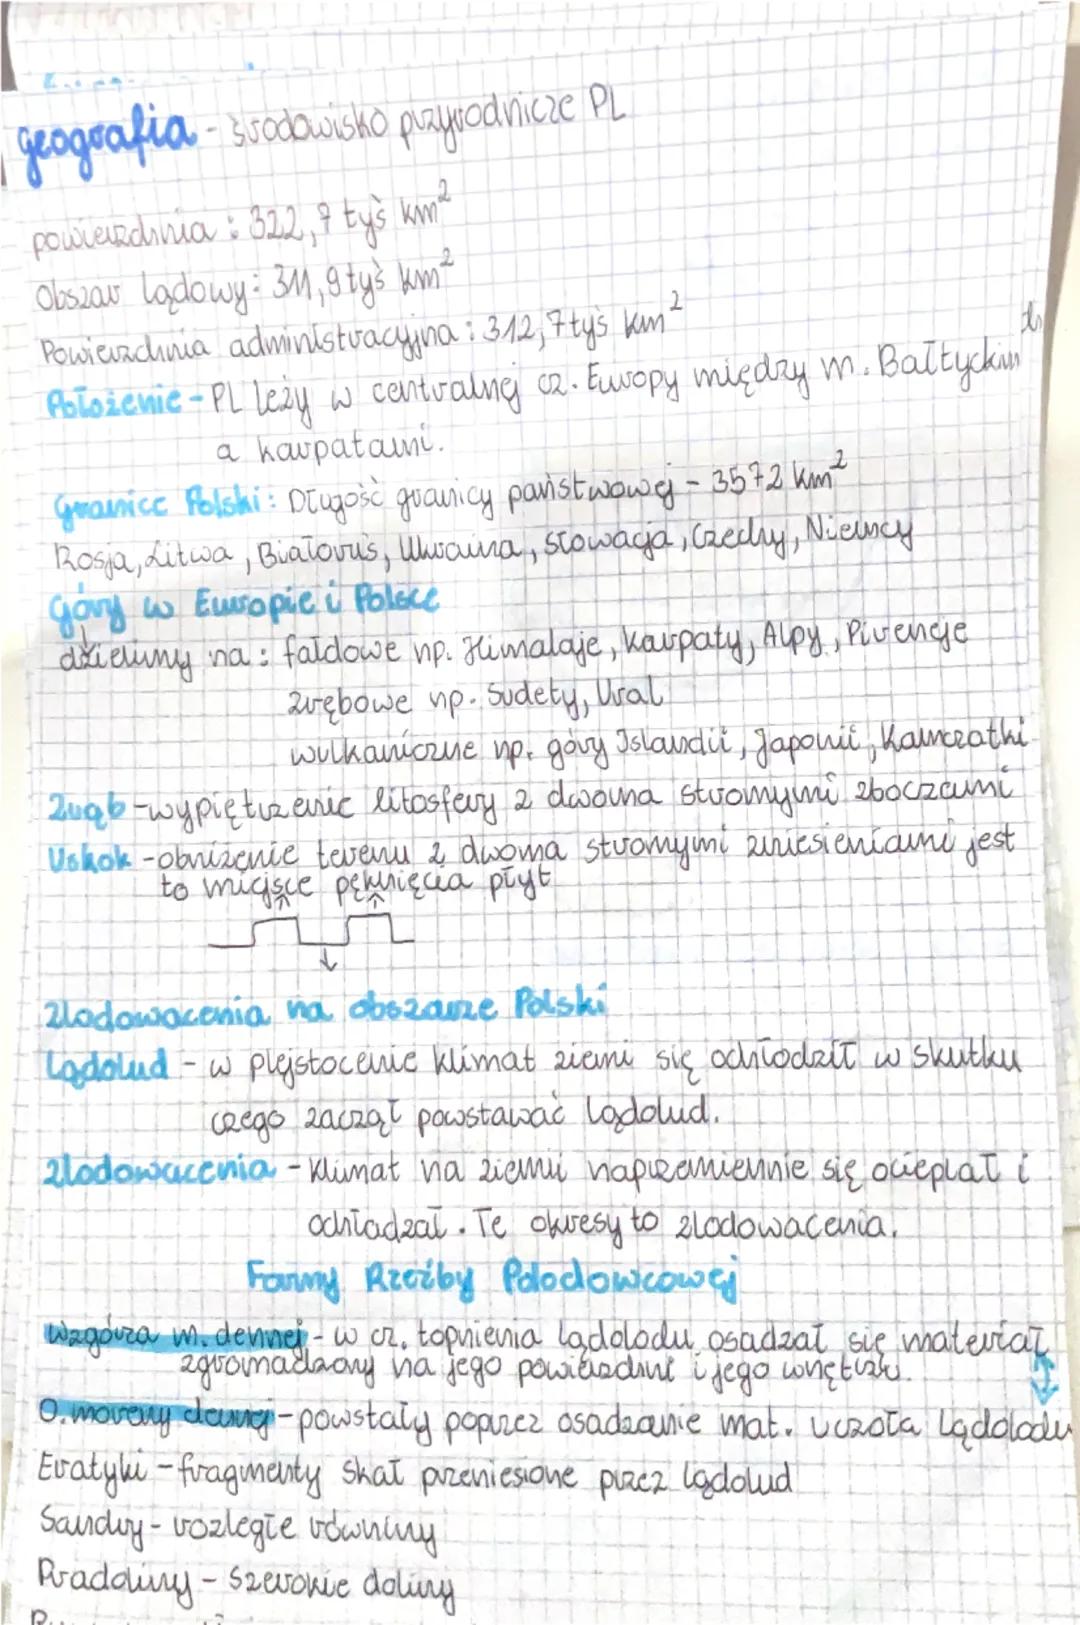 geografia - środowisko przyrodnicze PL
powierzchnia : 322,7 tyś km²
Obszar lądowy : 311,9 tyś km²
Powierzchnia administracyjna : 312,7 tyś km²
Położenie - PL leży w centralnej cz. Europy między m. Bałtyckim
a karpatami.
Granice Polski : Długość granicy państwowej - 3572 km²
Rosja, Litwa, Białoruś, Ukraina, Słowacja, Czechy, Niemcy
Góry w Europie i Polsce
dzielimy na : fałdowe np. Himalaje, karpaty, Alpy, Pireneje
zrębowe np. Sudety, Ural
wulkaniczne np. góry Islandii, Japonii, Kamczatki
Zrąb - wypiętrzenie litosfery z dwoma stromymi zboczami
Uskok - obniżenie terenu z dwoma stromymi zniesieniami jest
to miejsce pęknięcia płyt
Zlodowacenia na obszarze Polski
Lądolud - w plejstocenie klimat ziemi się ochłodził w skutku
czego zaczął powstawać lądolud.
Zlodowacenia - klimat na ziemii naprzemiennie się ocieplał i
ochładzał. Te okresy to zlodowacenia.
Formy Rzeźby Polodowcowej
Wzgórza m. dennej - w cz. topnienia lądolodu osadzał się materiał
zgromadzony na jego powierzchni i jego wnętrzu.
O. moreny dennej - powstały poprzez osadzanie mat. u czoła lądolodu
Eratyki - fragmenty skał przeniesione przez lądolud
Sandry - rozległe równiny
Pradoliny - szerokie doliny